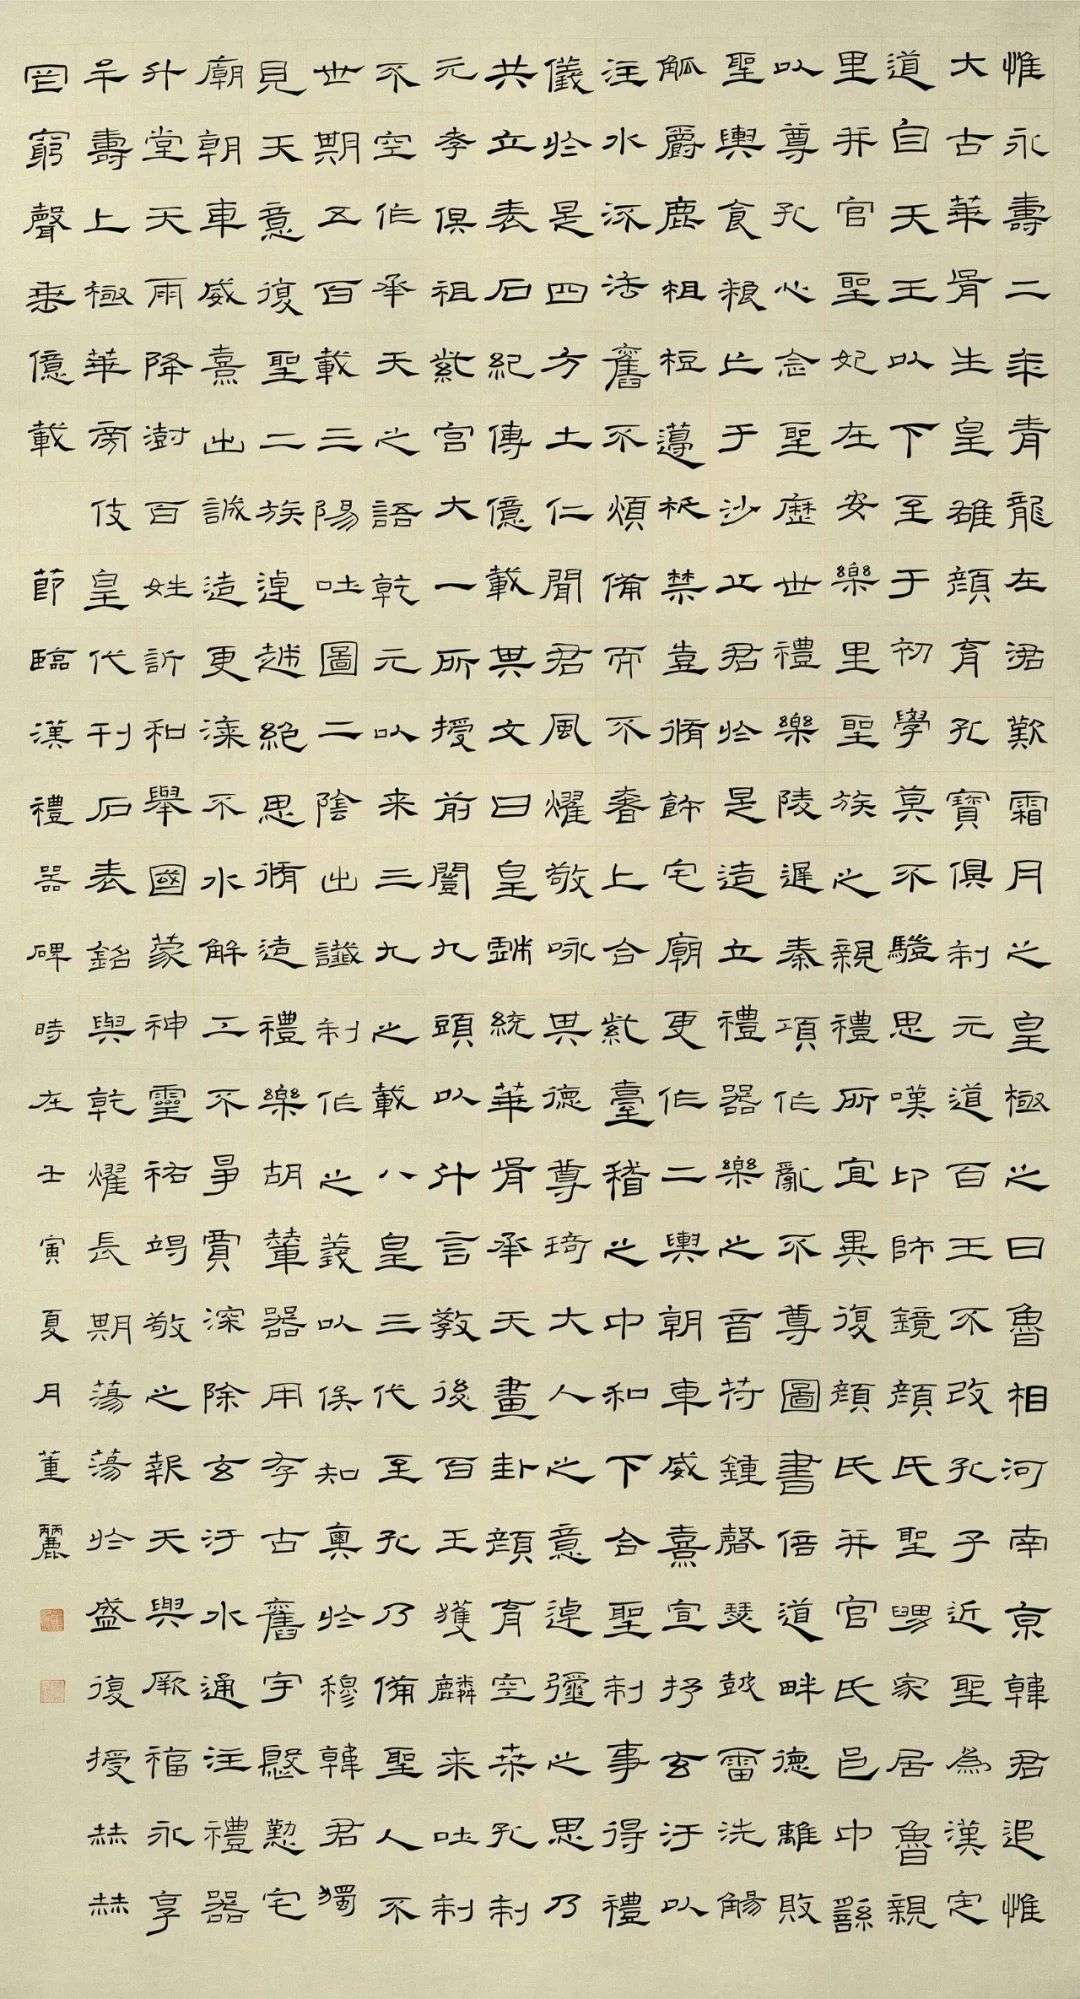 惟永壽二年青龍在涒歎霜月之皇極之日魯相河南京韓君追惟
大古華胥生皇雄顏育孔寶俱制元道百王不改孔子近聖為漢定
道自天王以下至于初學莫不驗思嘆卬師鏡顏氏聖舅家居魯親
里并官聖妃在安樂里聖族之親禮所宜異復顏氏并官氏邑中繇
以尊孔心念聖歷世禮樂陵遲秦項作亂不尊圖書倍道畔德離敗
聖輿食糧亡于沙丘君於是造立禮器樂之音符鍾磬瑟鼓雷洗觴
觚爵鹿柤梪籩柉禁壺脩飾宅廟更作二輿朝車威熹宣抒玄汙以
注水流法舊不煩備而不奢上合紫臺稽之中和下合聖制事得禮
儀於是四方土仁聞君風燿敬咏其德尊琦大人之意逴彌之思乃
共立表石紀傳億載其文曰皇戲統華胥承天畫卦顏育空桑孔制
元孝俱祖紫宮大一所授前闓九頭以什言教後百王獲麟来吐制
不空作承天之語乾元以来三九之載八皇三代至孔乃備聖人不
世期五百載三陽吐圖二陰出讖制作之義以俟知奧於穆韓君獨
見天意復聖二族逴越絕思脩造禮樂胡輦器用存古舊宇慇懃宅
廟朝車威熹出誠造更漆不水解工不爭賈深除玄汙水通注禮器
升堂天雨降澍百姓訢和舉國蒙神靈祐竭敬之報天與厥福永享
牟壽上極華旁伎皇代刊石表銘與乾燿長期蕩蕩於盛復授赫赫
罔窮聲垂億載 節臨漢禮器碑時在壬寅夏月董麗